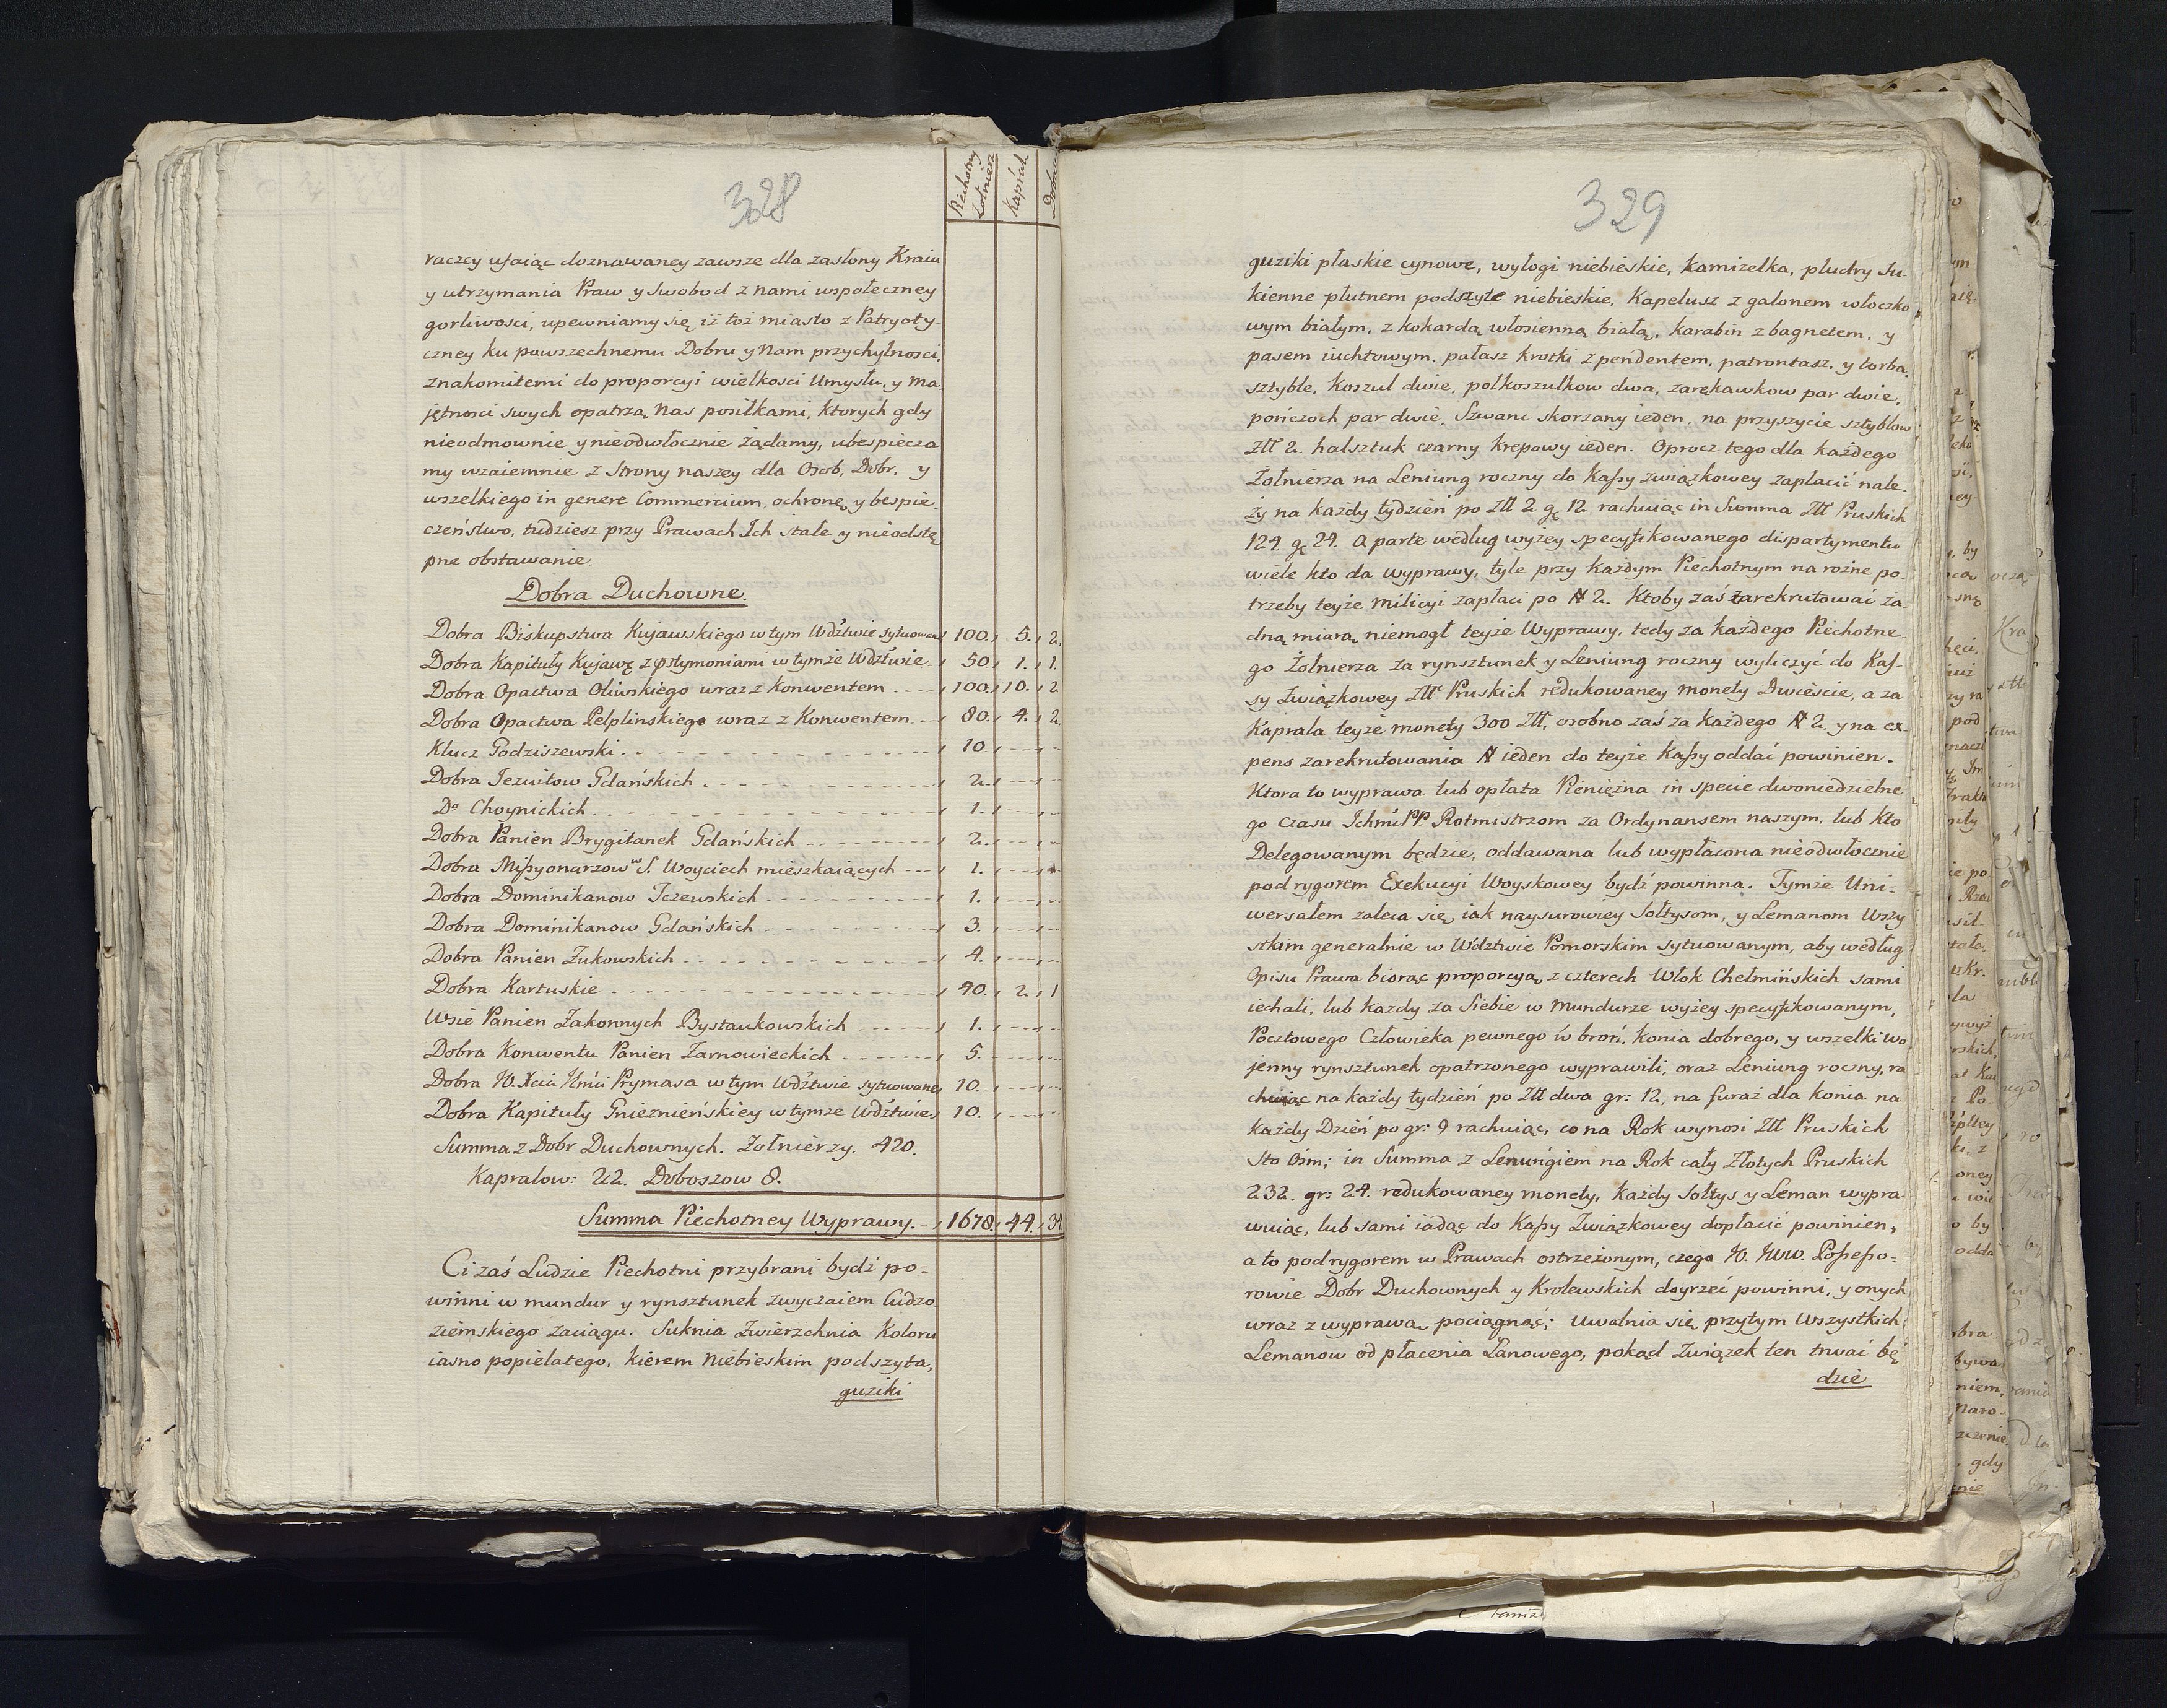 328
Piechotny Żołnierz Kaprál.
raczey ufaiąc doznawaney zawsze dla zasłony Kraiu
y utrzymania Praw y Swobod z nami wspołeczney
gorliwosci, upewniamy się iż toż miasto z Patryoty-
czney ku powszechnemu Dobru y Nam przychylnosci,
znakomitemi do proporcyi wielkosci Umysłu, y ma
jętnosci swych opatrzą Nas posiłkami, ktorych gdy
nieodmownie y nieodwłocznie żądamy, ubespiecza
my wzaiemnie z Strony naszey dla Osob, Dobr, y
wszelkiego in genere Commercium, ochronę, y bespie
czeństwo, tudziesz przy Prawach Ich stałe y nieodstę
pne obstawanie.
Dobra Duchowne.
Dobra Biskupstwa Kujawskiego w tym Wdztwie sytuowane 100. 5. 2.
Dobra Kapituły Kujawę z pstymoniami w tymże Wdztwie 50 1. 1.
Dobra Opactwa Oliwskiego wraz z Konwentem 100. 10. 2
Dobra Opactwa Pelplinskiego wraz z Konwentem 80. 4. 2.
Klucz Godziszewski 10.
Dobra Jezuitow Gdańskich 2.
Do Choynickich 1.
Dobra Panien Brygitanek Gdańskich 2.
Dobra Missyonarzow w S. Woyciech mieszkaiących 1.
Dobra Dominikanow Tczewskich 1.
Dobra Dominikanow Gdańskich 3.
Dobra Panien Żukowskich 4.
Dobra Kartuskie 40. 2. 1
Wsie Panien Zakonnych Bystaukowskich 1.
Dobra Konwentu Panien Żarnowieckich 5.
Dobra JO. Xcia Jmci Prymasa w tym Wdztwie sytuowane 10.
Dobra Kapituły Gnieznieńskiey w tymże Wdztwie 10.
Summa z Dobr Duchownych. Żołnierzy. 420.
Kapralow: 22. Doboszow 8.
Summa Piechotney Wyprawy. 1678. 44. 34
Ci zaś Ludzie Piechotni przybrani bydź po-
winni w mundur y rynsztunek zwyczaiem Cudzo
ziemskiego zaciągu. Suknia Zwierzchnia Koloru
iasno popielatego, kierem Niebieskim podszyta,
guziki
329
guziki płaskie cynowe, wyłogi niebieskie, kamizelka, pludry Su-
kienne płutnem podszyte niebieskie, Kapelusz z galonem włoczko
wym białym, z kokardą włosienną białą, karabin z bagnetem, y
pasem iuchtowym, pałasz krotki z pendentem, patrontasz, y torba,
sztyble, Koszul dwie, połkoszulkow dwa, zarękawkow par dwie,
pończoch par dwie, Szwanc skorzany ieden, na przyszycie sztyblow
Złł 2. halsztuk czarny krepowy ieden. Oprocz tego dla każdego
Żołnierza na Leniung roczny do Kassy związkowey zapłacić nale-
ży na każdy tydzień po Złł 2 gę 12 rachuiąc in Summa Złł Pruskich
124. gę 24. A parte według wyżey specyfikowanego dispartymentu
wiele kto da wyprawy, tyle przy każdym Piechotnym na rożne po-
trzeby teyże milicyi zapłaci po # 2. Ktoby zaś zarekrutować ża-
dną miarą niemogł teyże Wyprawy, tedy za każdego Piechotne-
go Żołnierza za rynsztunek y Leniung roczny wyliczyć do Kas-
sy Związkowey Złł Pruskich redukowaney monety Dwieście, a za
Kaprala teyże monety 300 Złł, osobno zaś za każdego # 2. y na ex-
pens zarekrutowania # ieden do teyże Kassy oddać powinien.
Ktora to wyprawa lub opłata Pieniężna in specie dwoniedzielne
go czasu Ichmć PP. Rotmistrzom za Ordynansem naszym, lub kto
Delegowanym będzie, oddawana lub wypłacona nieodwłocznie
pod rygorem Exekucyi Woyskowey bydź powinna. Tymże Uni-
wersałem zaleca się, iak naysurowiey Sołtysom, y Lemanom Wszy
stkim generalnie w Wdztwie Pomorskim sytuowanym, aby według
Opisu Prawa biorąc proporcyą, z czterech Włok Chełmińskich sami
iechali, lub każdy za Siebie w Mundurze wyżey specyfikowanym,
Pocztowego Człowieka pewnego w broń, konia dobrego, y wszelki wo
jenny rynsztunek opatrzonego wyprawili, oraz Leniung roczny, ra
chuiąc na każdy tydzień po Złł dwa gr: 12, na furaż dla konia na
każdy Dzień po gr: 9 rachuiąc, co na Rok wynosi Złł Pruskich
Sto Ośm; in Summa z Lenungiem na Rok cały Złotych Pruskich
232. gr: 24. redukowaney monety, każdy Sołtys y Leman wypra
wuiąc, lub sami iadąc do Kassy Związkowey dopłacić powinien,
a to pod rygorem w Prawach ostrzeżonym, czego JO. JWW. Possesso-
rowie Dobr Duchownych y Krolewskich doyrzeć powinni, y onych
wraz z wyprawą pociągnąć; Uwalnia się przytym Wszystkich
Lemanow od płacenia Łanowego, pokąd Związek ten trwać bę
dzie